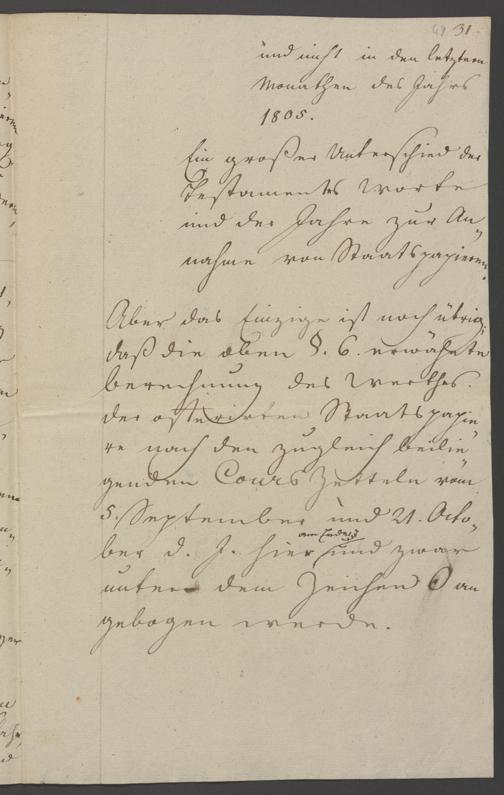 31.
und nicht in den letztern
Monathen des Jahrs
1805.
Ein großer Unterschied der
Testaments Worte
und der Jahre zur An„
nahme von Staatspapieren.
Aber das Einzige ist noch übrig,
daß die oben §. 6. erwähnte
berechnung des Werthes
der offerirten Staatspapie„
re nach den zugleich beilie„
genden Cours Zetteln vom
5. September und 21. Octo„
ber d. J. hier am Ende und zwar
unter dem Zeichen O an
gebogen werde.